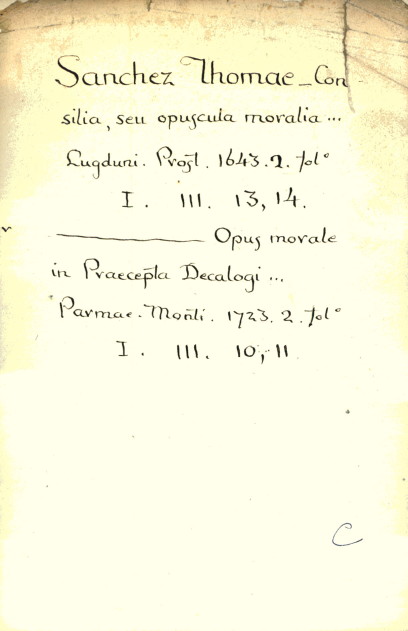 Sanchez Thomae_Con-
silia, seu opuscula moralia...
Lugduni. Prost. 1643. 2. fol°
I. III. 13, 14.
———— Opus morale
in Praecepta Decalogi...
Parmae. Monti. 1723. 2. fol°
I. III. 10, 11
C